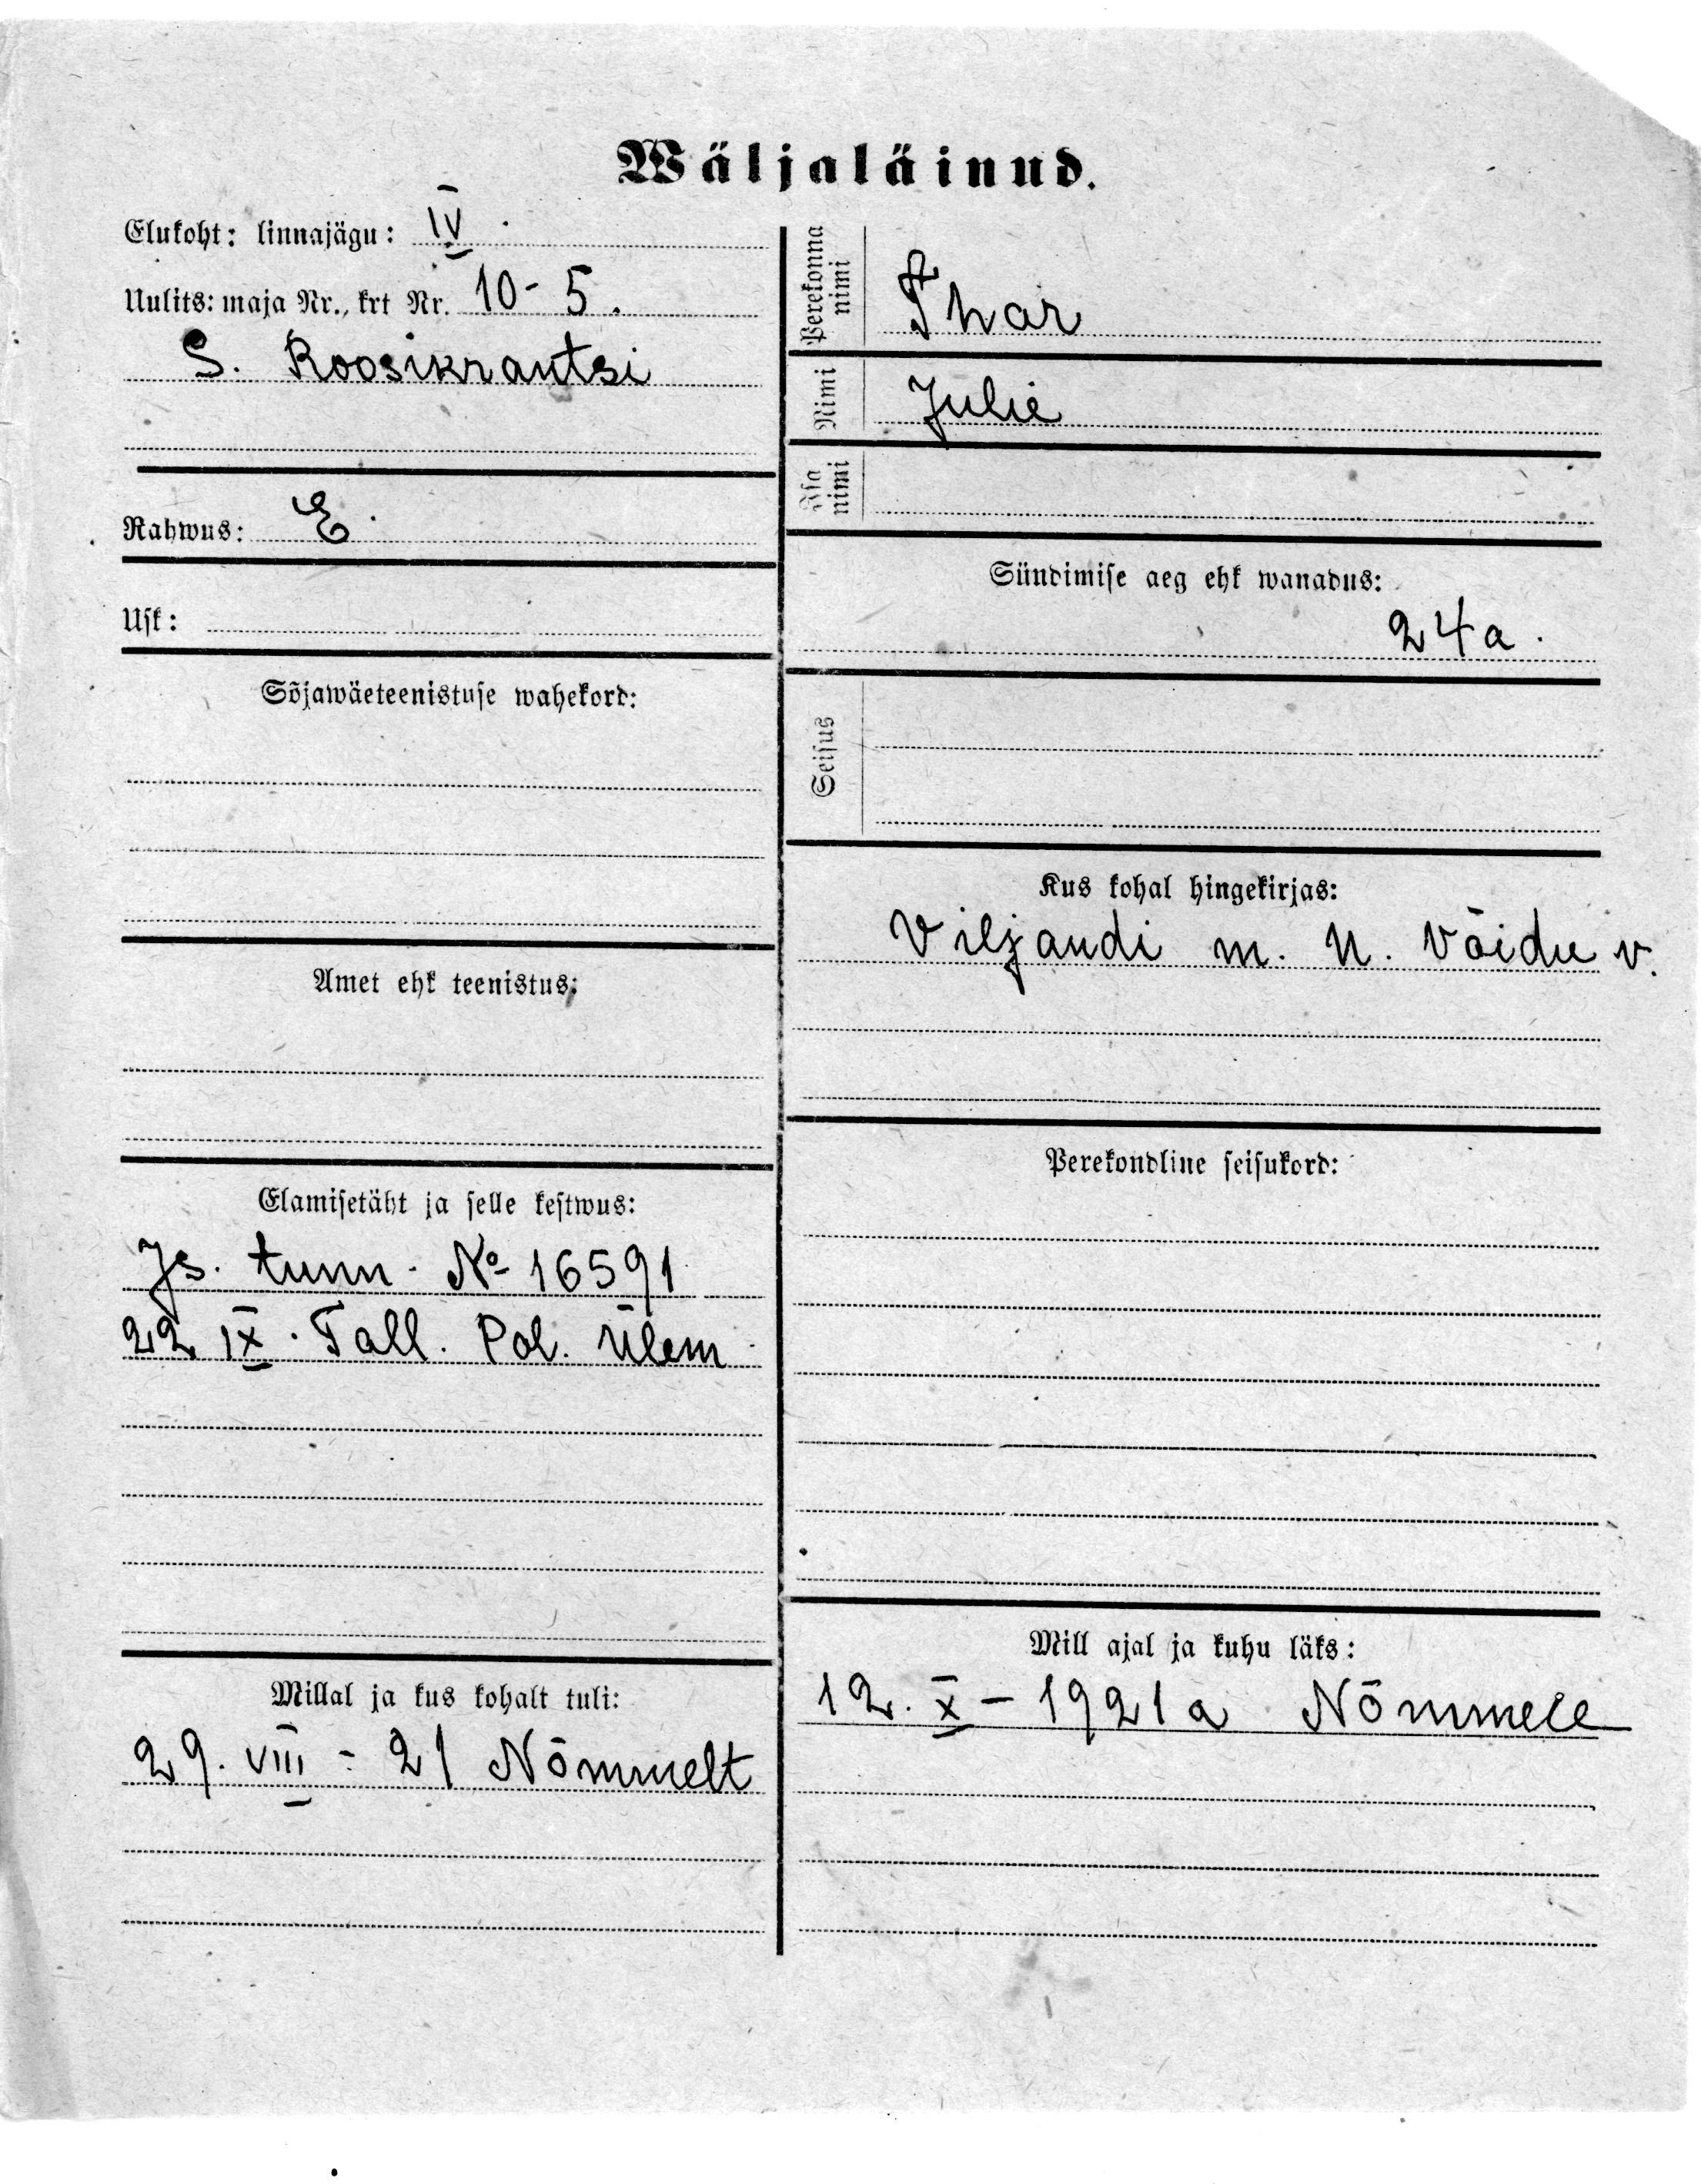 Wäljaläinud.
Elukoht: linnajagu: IV
Uulits: maja Nr., krt Nr. 10-5.
S. Roosikrantsi
Rahwus: E.
Usk:
Sõjawäeteenistuse wahekord:
Amet ehk teenistus:
Elamisetäht ja selle kestwus:
Js. tunn. № 16591
22 IX. Tall. Pol. Ülem
Millal ja kus kohalt tuli:
29. VIII - 21 Nõmmelt
Perekonna nimi
Thar
Nimi
Julie
Isa nimi
Sündimise aeg ehk wanadus:
24a.
Seisus
Kus kohal hingekirjas:
Viljandi m. U. Võidu v.
Perekondline seisukord:
Mill ajal ja kuhu läks:
12. X - 1921 a Nõmmele